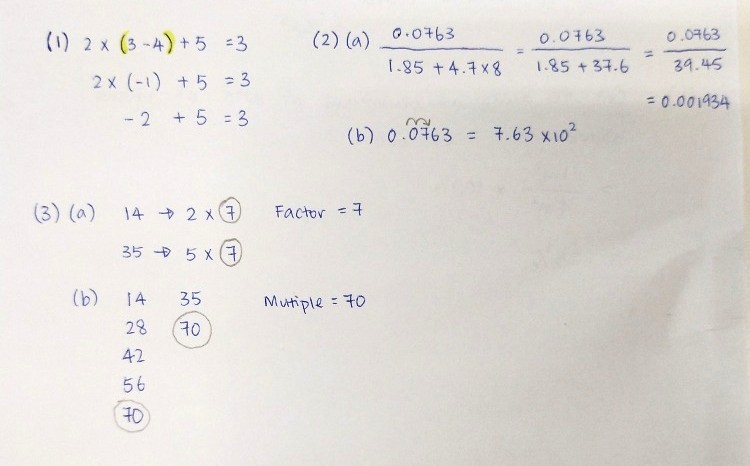 (1) 2 × (3 - 4) + 5 = 3
2 × (-1) + 5 = 3
- 2 + 5 = 3
(2) (a) 0.0763 / 1.85 + 4.7 × 8 = 0.0763 / 1.85 + 37.6 = 0.0763 / 39.45
= 0.001934
(b) 0.0763 = 7.63 × 10²
(3) (a) 14 → 2 × 7 Factor = 7
35 → 5 × 7
(b) 14 35 Multiple = 70
28 70
42
56
70